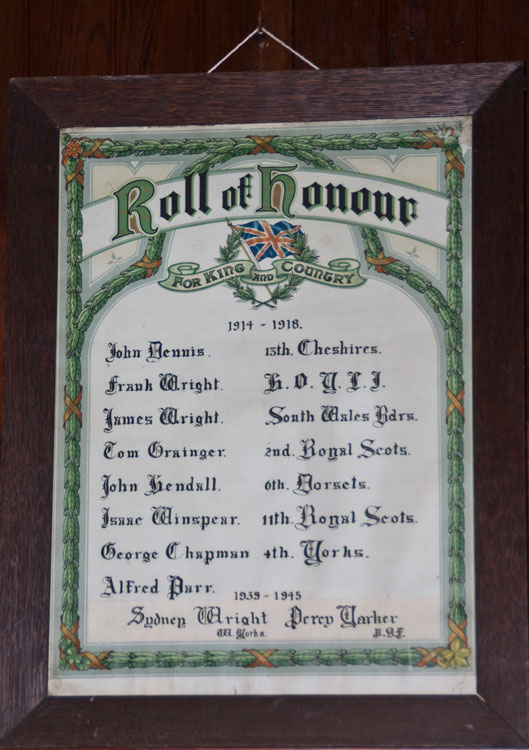 Roll of Honour
FOR KING AND COUNTRY
1914 - 1918.
John Dennis. 13th. Cheshires.
Frank Wright. K. O. Y. L. I.
James Wright. South Wales Bdrs.
Tom Grainger. 2nd. Royal Scots.
John Kendall. 6th. Dorsets.
Isaac Winspear. 11th. Royal Scots.
George Chapman 4th. Yorks.
Alfred Parr.
1939 - 1945
Sydney Wright Percy Yarker
W. Yorks. R.A.F.